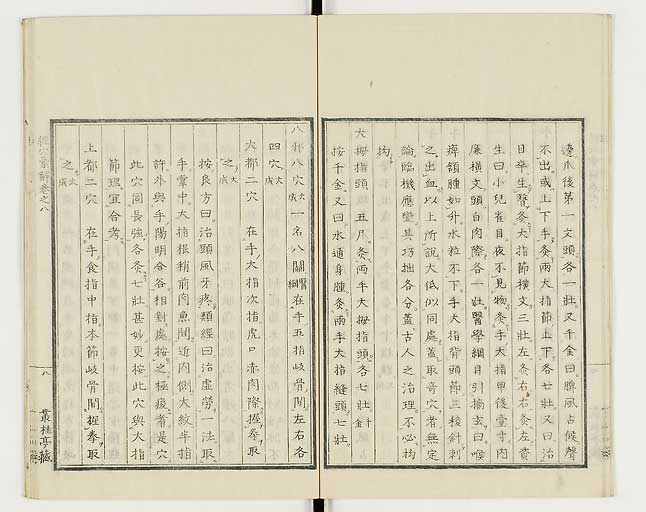 邊爪後第一文頭各一壯又千金曰脾風占候聲
不出或上下手灸兩大指節上下各廿壯又曰治
目卒生翳灸大指節橫文三壯左灸右右灸左資
生曰小兒雀目夜不見物灸手大指甲後一寸內
廉橫文頭白肉際各一壯醫學綱目引摘玄曰喉
痺頷腫如升水粒不下手大指背頭節三稜針刺
之出血以上所說大低似同處蓋取奇穴者無定
論臨機應變其巧拙各分蓋古人之治理不必拘
拘
大拇指頭 五尸灸兩手大拇指頭各七壯千金
按千金又曰水通身腫灸兩手大指縫頭七壯
八邪八穴大成一名八關醫綱在手五指岐骨間左右各
四穴大成
大都二穴 在手大指次指虎口赤肉際握拳取
之大成
按良方曰治頭風牙疼類經曰治虛勞一法取
手掌中大指根稍前肉魚間近內側大紋半指
許外與手陽明合谷相對處按之極痠者是穴
此穴同長強各灸七壯甚妙更按此穴與大指
節理宜合考
上都二穴 在手食指中指本節岐骨間握拳取
之大成
經穴彙解卷之八
八
叢桂亭藏